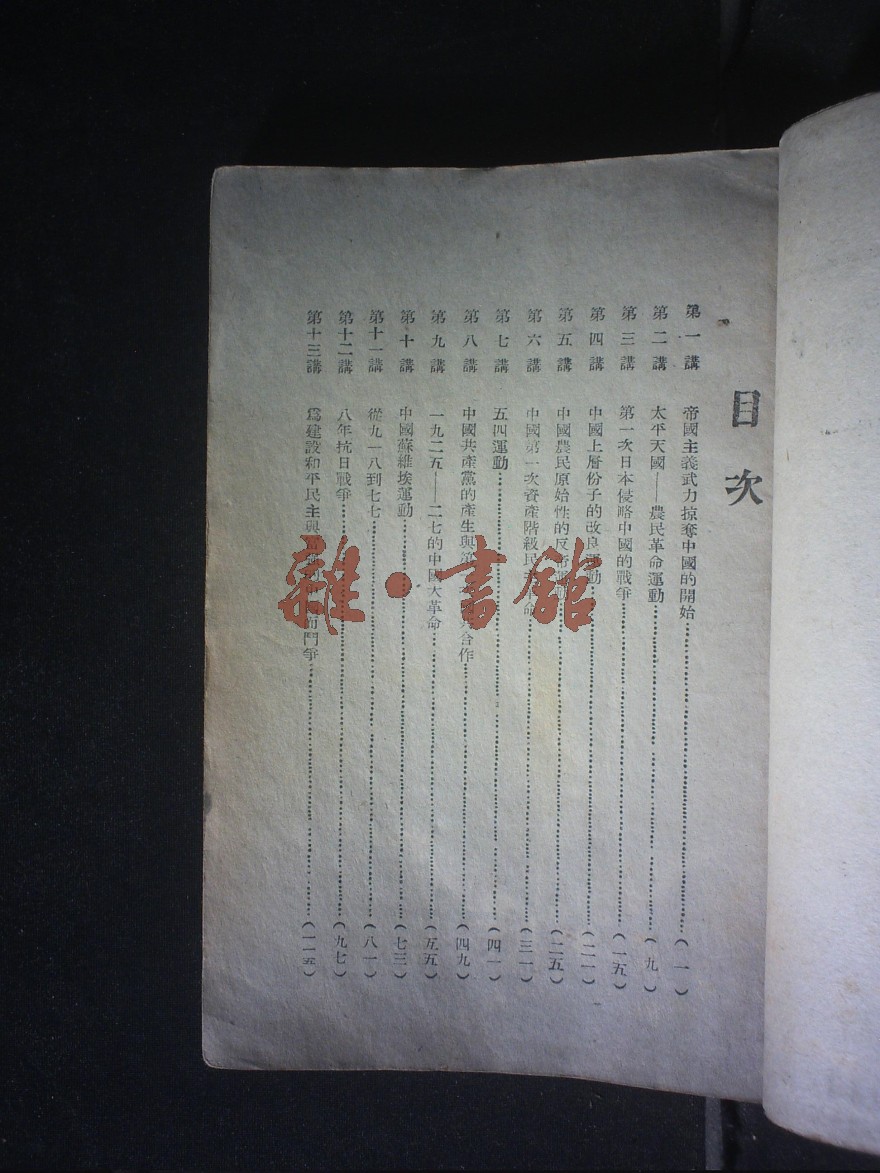 目次
第一講 帝國主義武力掠奪中國的開始……(一)
第二講 太平天國——農民革命運動……(九)
第三講 第一次日本侵略中國的戰爭……(一五)
第四講 中國上層份子的改良運動……(二一)
第五講 中國農民原始性的反帝運動……(二五)
第六講 中國第一次資產階級民 命……(三一)
第七講 五四運動……(四一)
第八講 中國共產黨的產生與第 合作……(四九)
第九講 一九二五——二七的中國大革命……(五五)
第十講 中國蘇維埃運動……(七三)
第十一講 從九一八到七七……(八一)
第十二講 八年抗日戰爭……(九七)
第十三講 為建設和平民主與 而鬥爭……(一一五)
雜·書館